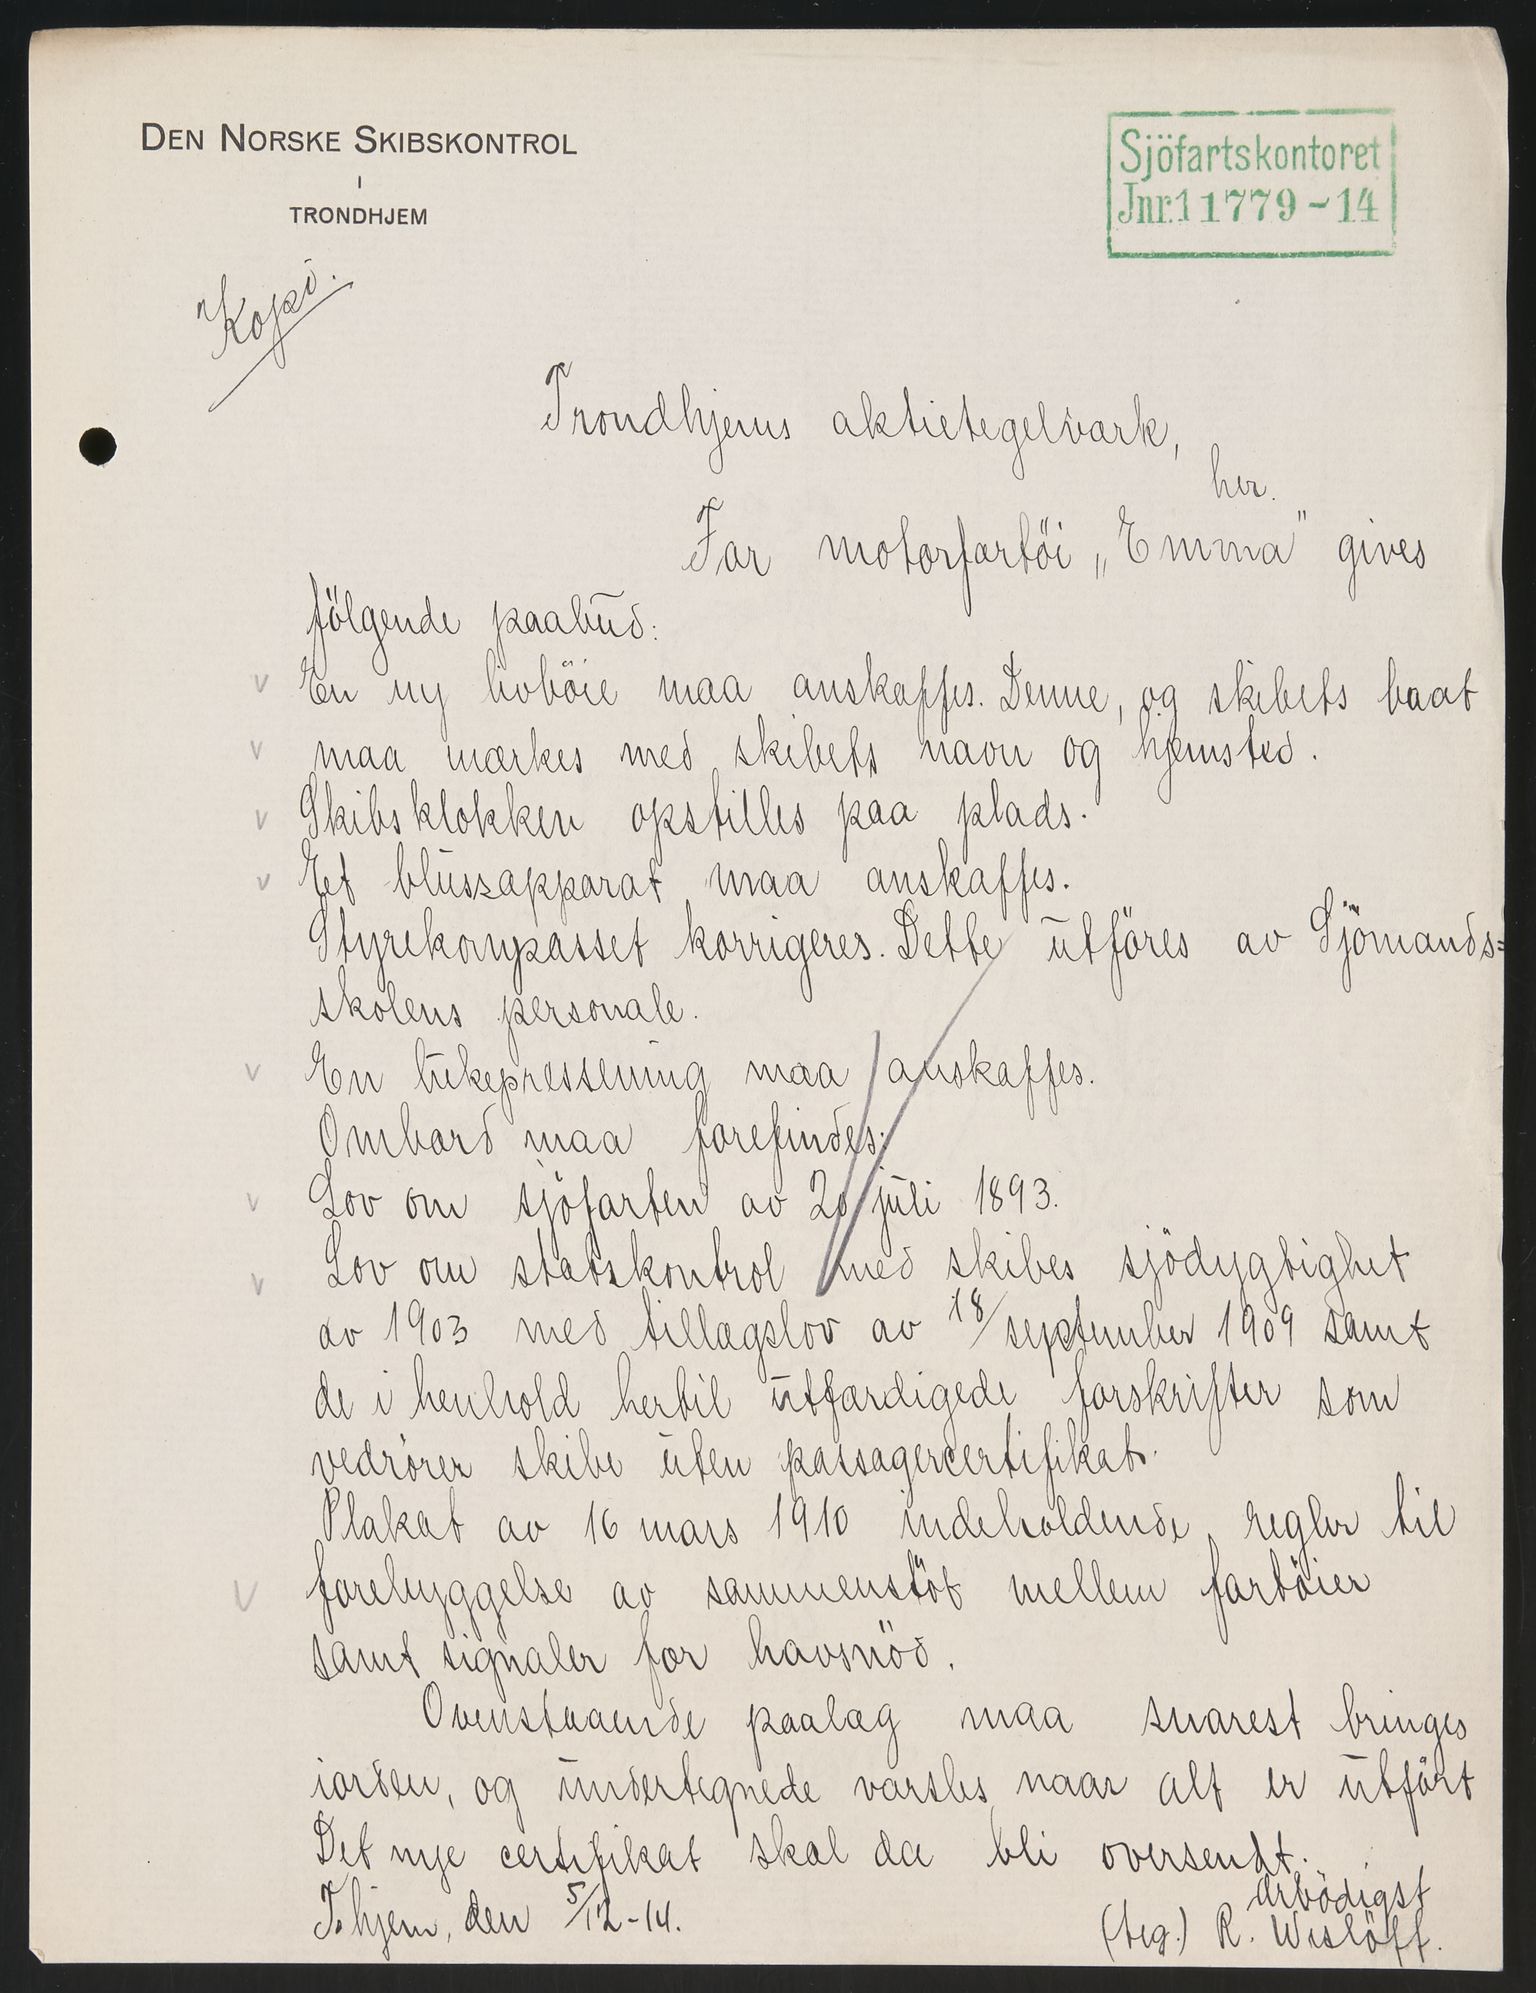 DEN NORSKE SKIBSKONTROL
I
TRONDHJEM
Sjöfartskontoret
Jnr. 11779-14
Kopi.
Trondhjems aktietegelværk,
her.
For motorfartöi „Emma" gives
fölgende paabud:
v En ny livböie maa anskaffes. Denne, og skibets baat
v maa mærkes med skibets navn og hjemsted.
v Skibsklokken opstilles paa plads.
v Et blusapparat maa anskaffes.
Styrekompasset korrigeres. Dette utföres av Sjömands=
skolens personale.
v En lukepressening maa anskaffes.
Ombord maa forefindes:
v Lov om sjöfarten av 20 juli 1893.
v Lov om statskontrol med skibes sjödygtighet
av 1903 med tillægslov av 18/september 1909 samt
de i henhold hertil utfærdigede forskrifter som
vedrører skibe uten passagercertifikat.
Plakat av 16 mars 1910 indeholdende regler til
v forebyggelse av sammenstöt mellem fartöier
samt signaler for havsnöd.
Ovenstaaende paalæg maa snarest bringes
iorden, og undertegnede varsles naar alt er utfört
Det nye certifikat skal da bli oversendt.
T.hjem, den 5/12-14.
ærbödigst
(teg.) R. Wislöff.